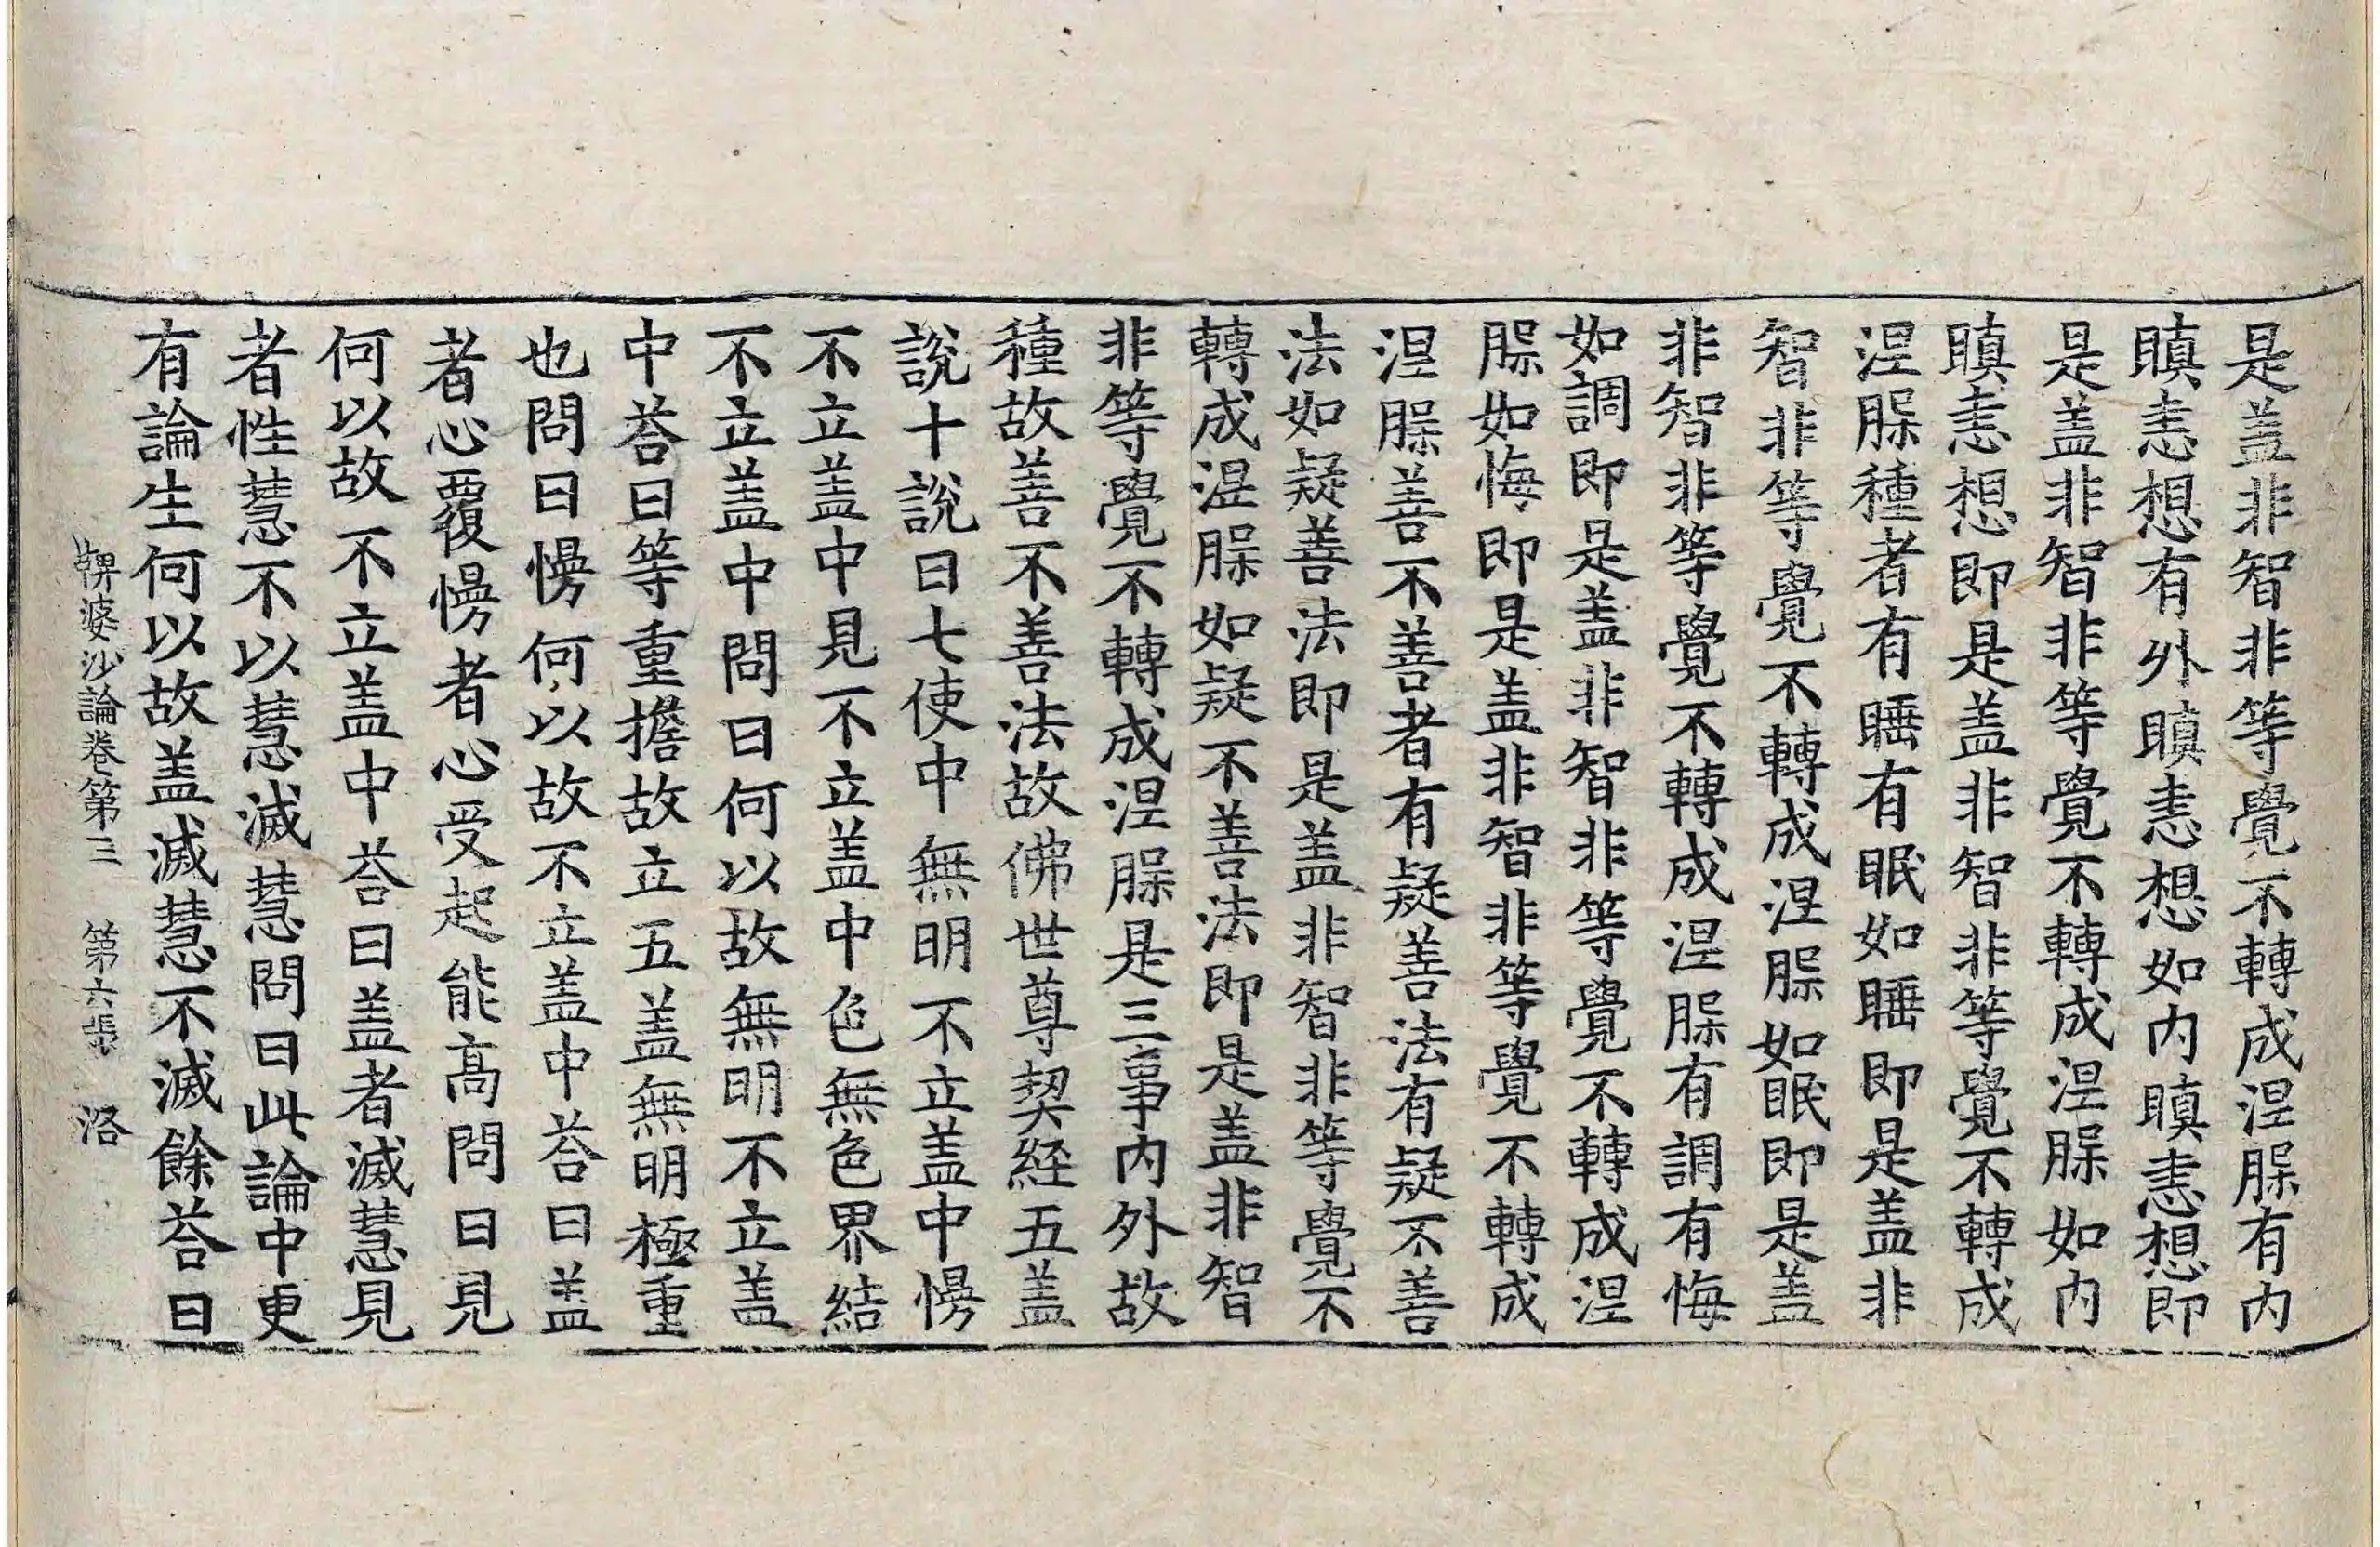 是盖非智非等覺不轉成涅𦞩有内
瞋恚想有外瞋恚想如内瞋恚想即
是盖非智非等覺不轉成涅𦞩如内
瞋恚想即是盖非智非等覺不轉成
涅𦞩種者有睡有眠如睡即是盖非
智非等覺不轉成涅𦞩如眠即是盖
非智非等覺不轉成涅𦞩有調有悔
如調即是盖非智非等覺不轉成涅
𦞩如悔即是盖非智非等覺不轉成
涅𦞩善不善者有疑善法有疑不善
法如疑善法即是盖非智非等覺不
轉成涅𦞩如疑不善法即是盖非智
非等覺不轉成涅𦞩是三事内外故
種故善不善法故佛世尊契経五盖
說十說曰七使中無明不立盖中慢
不立盖中見不立盖中色無色界結
不立盖中問曰何以故無明不立盖
中荅曰等重擔故立五盖無明極重
也問曰慢何以故不立盖中荅曰盖
者心覆慢者心受起能高問曰見
何以故不立盖中荅曰盖者滅慧見
者性慧不以慧滅慧問曰此論中更
有論生何以故盖滅慧不滅餘荅曰
鞞婆沙論卷第三 第六張 洛